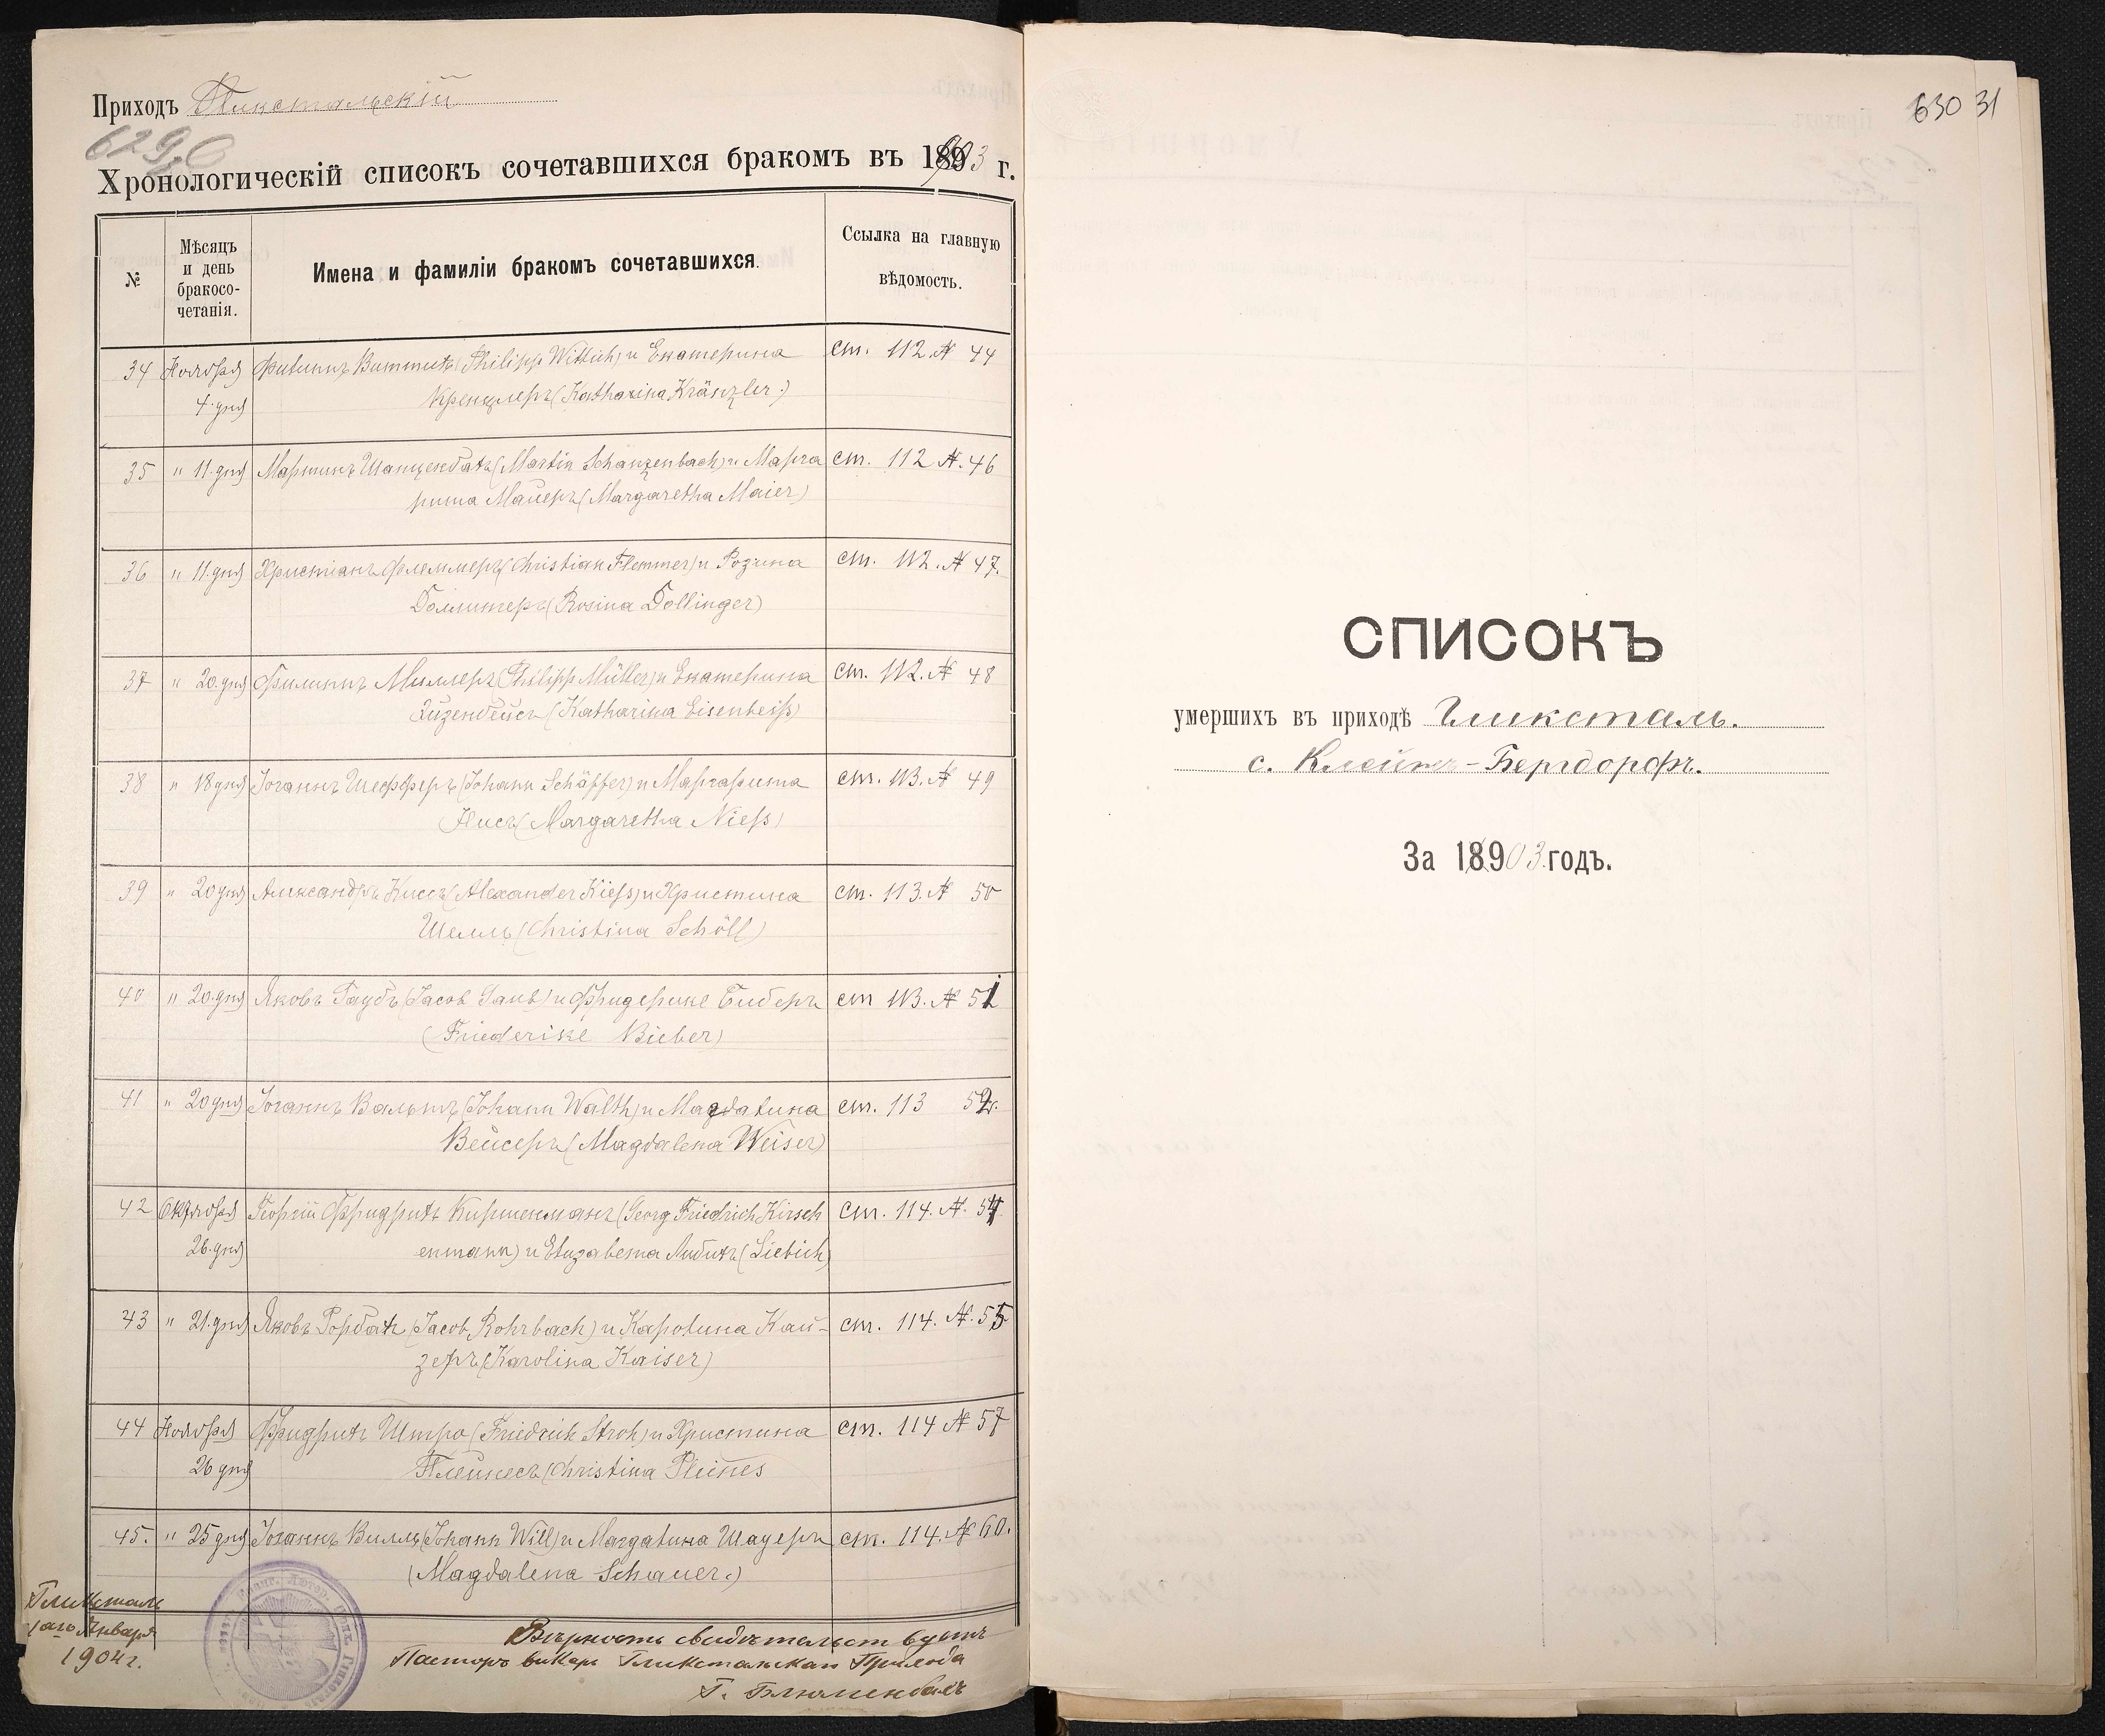 Приходъ Гликстальскій
629 об
Хронологическій списокъ сочетавшихся бракомъ въ 1903 г.
№
Мѣсяцъ и день бракосо-четанія.
Имена и фамиліи бракомъ сочетавшихся.
Ссылка на главную вѣдомость.
34 Ноября Филиппъ Виттихъ (Philipp Wittich) и Екатерина ст. 112 № 44
4. дня Кренцлеръ (Katharina Kränzler.)
35 " 11. дня Мартинъ Шанценбахъ (Martin Schanzenbach) и Марга ст. 112 №. 46
рита Майеръ (Margaretha Maier)
36 " 11. дня Христіанъ Флеммеръ (Christian Flemmer) и Розина ст. 112. № 47.
Доллингеръ (Rosina Dollinger)
37 " 20. дня Филиппъ Миллеръ (Philipp Müller) и Екатерина ст. 112. № 48
Эйзенбейсъ (Katharina Eisenbeiß)
38 " 18 дня Іоганнъ Шефферъ (Johann Schäffer) и Маргарита ст. 113. № 49
Нисъ (Margaretha Nieß)
39 " 20 дня Александръ Киссъ (Alexander Kieß) и Христина ст. 113. № 50
Шелль (Christina Schöll)
40 " 20. дня Яковъ Гаубъ (Jacob Gaub) и Фридерике Биберъ ст 113. № 51
(Friederike Bieber)
41 " 20 дня Іоганнъ Вальтъ (Johann Walth) и Магдалина ст. 113 52.
Вейсеръ (Magdalena Weiser)
42 Октября Георгій Фридрихъ Киршенманъ (Georg Friedrich Kirsch ст. 114. №. 54
26. дня enmann) и Елизавета Либихъ (Liebich)
43 " 21. дня Яковъ Рорбахъ (Jacob Rohrbach) и Каролина Кай- ст. 114. №. 55
зеръ (Karolina Kaiser)
44 Ноября Фридрихъ Штро (Friedrich Stroh) и Христина ст. 114 № 57
26 дня Плейнесъ (Christina Pleines
45. " 25 дня Іоганнъ Вилль (Johann Will) и Магдалина Шауеръ ст. 114. № 60.
(Magdalena Schauer.)
Глюксталь
Января
1904 г.
Вѣрность свидѣтельствуетъ
Пасторъ викарь Глюкстальскаго Прихода
Г. Блюменбахъ
630 31
СПИСОКЪ
умершихъ въ приходѣ Гликсталь.
с. Клейнъ-Бергдорфъ.
За 1903 годъ.